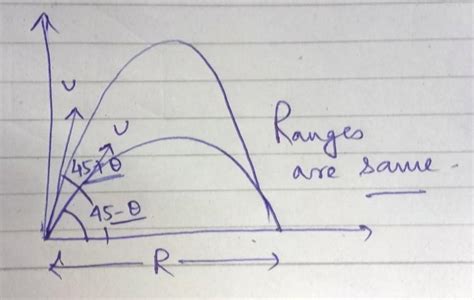 U
U
45+θ
45-θ
Ranges
are same.
R